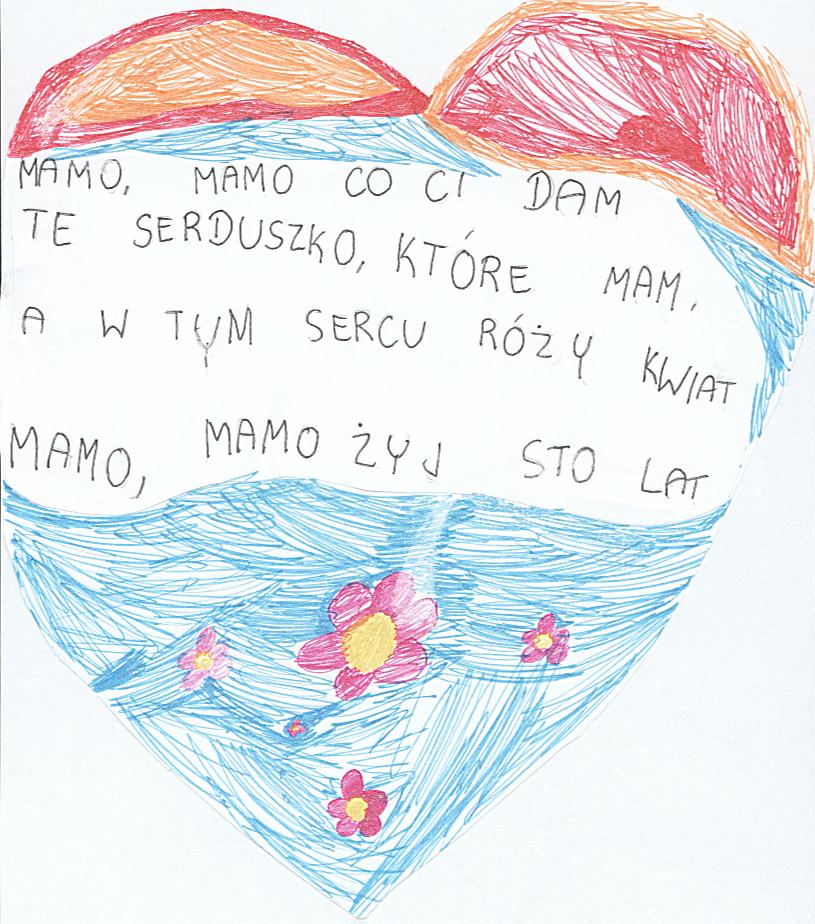 MAMO, MAMO CO CI DAM
TE SERDUSZKO, KTÓRE MAM,
A W TYM SERCU RÓŻY KWIAT
MAMO, MAMO ŻYJ STO LAT